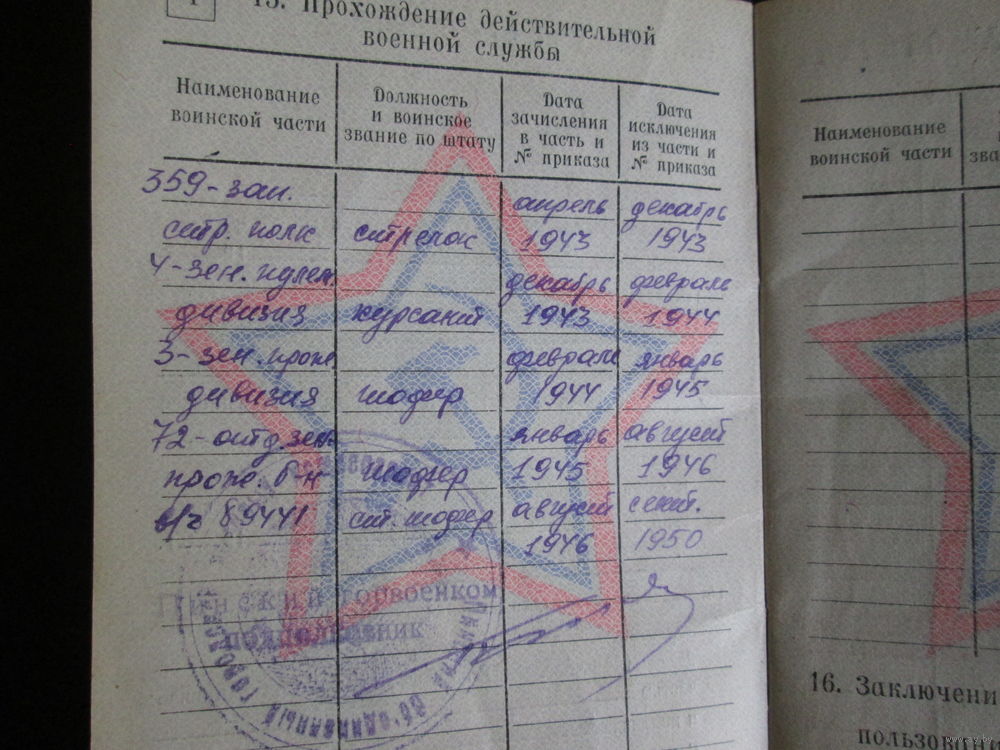 15. Прохождение действительной
военной службы
Наименование
воинской части
Должность
и воинское
звание по штату
Дата
зачисления
в часть и
№ приказа
Дата
исключения
из части и
№ приказа
359-зап.
стр. полк
стрелок
апрель
1943
декабрь
1943
4-зен. пулем.
дивизия
курсант
декабрь
1943
февраль
1944
3-зен. прож
дивизия
шофер
февраль
1944
январь
1945
72-отд. зен.
прож. б-н
шофер
январь
1945
август
1946
в/ч 89441
ст. шофер
август
1946
сент.
1950
Пинский горвоенком
подполковник
Наименование
воинской части
зва
16. Заключени
пользован
www.ay.by